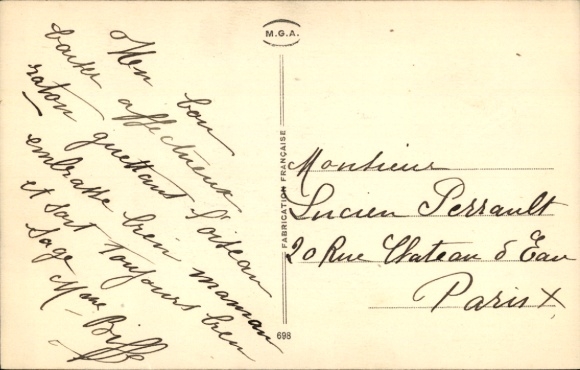 M.G.A.
Mon bon
baiser affectueux
raton guettant l'oiseau
embrasse bien maman
et soit toujours bien
sage Mme Biffe
FABRICATION FRANÇAISE
698
Monsieur
Lucien Perrault
20 Rue Chateau d Eau
Paris X